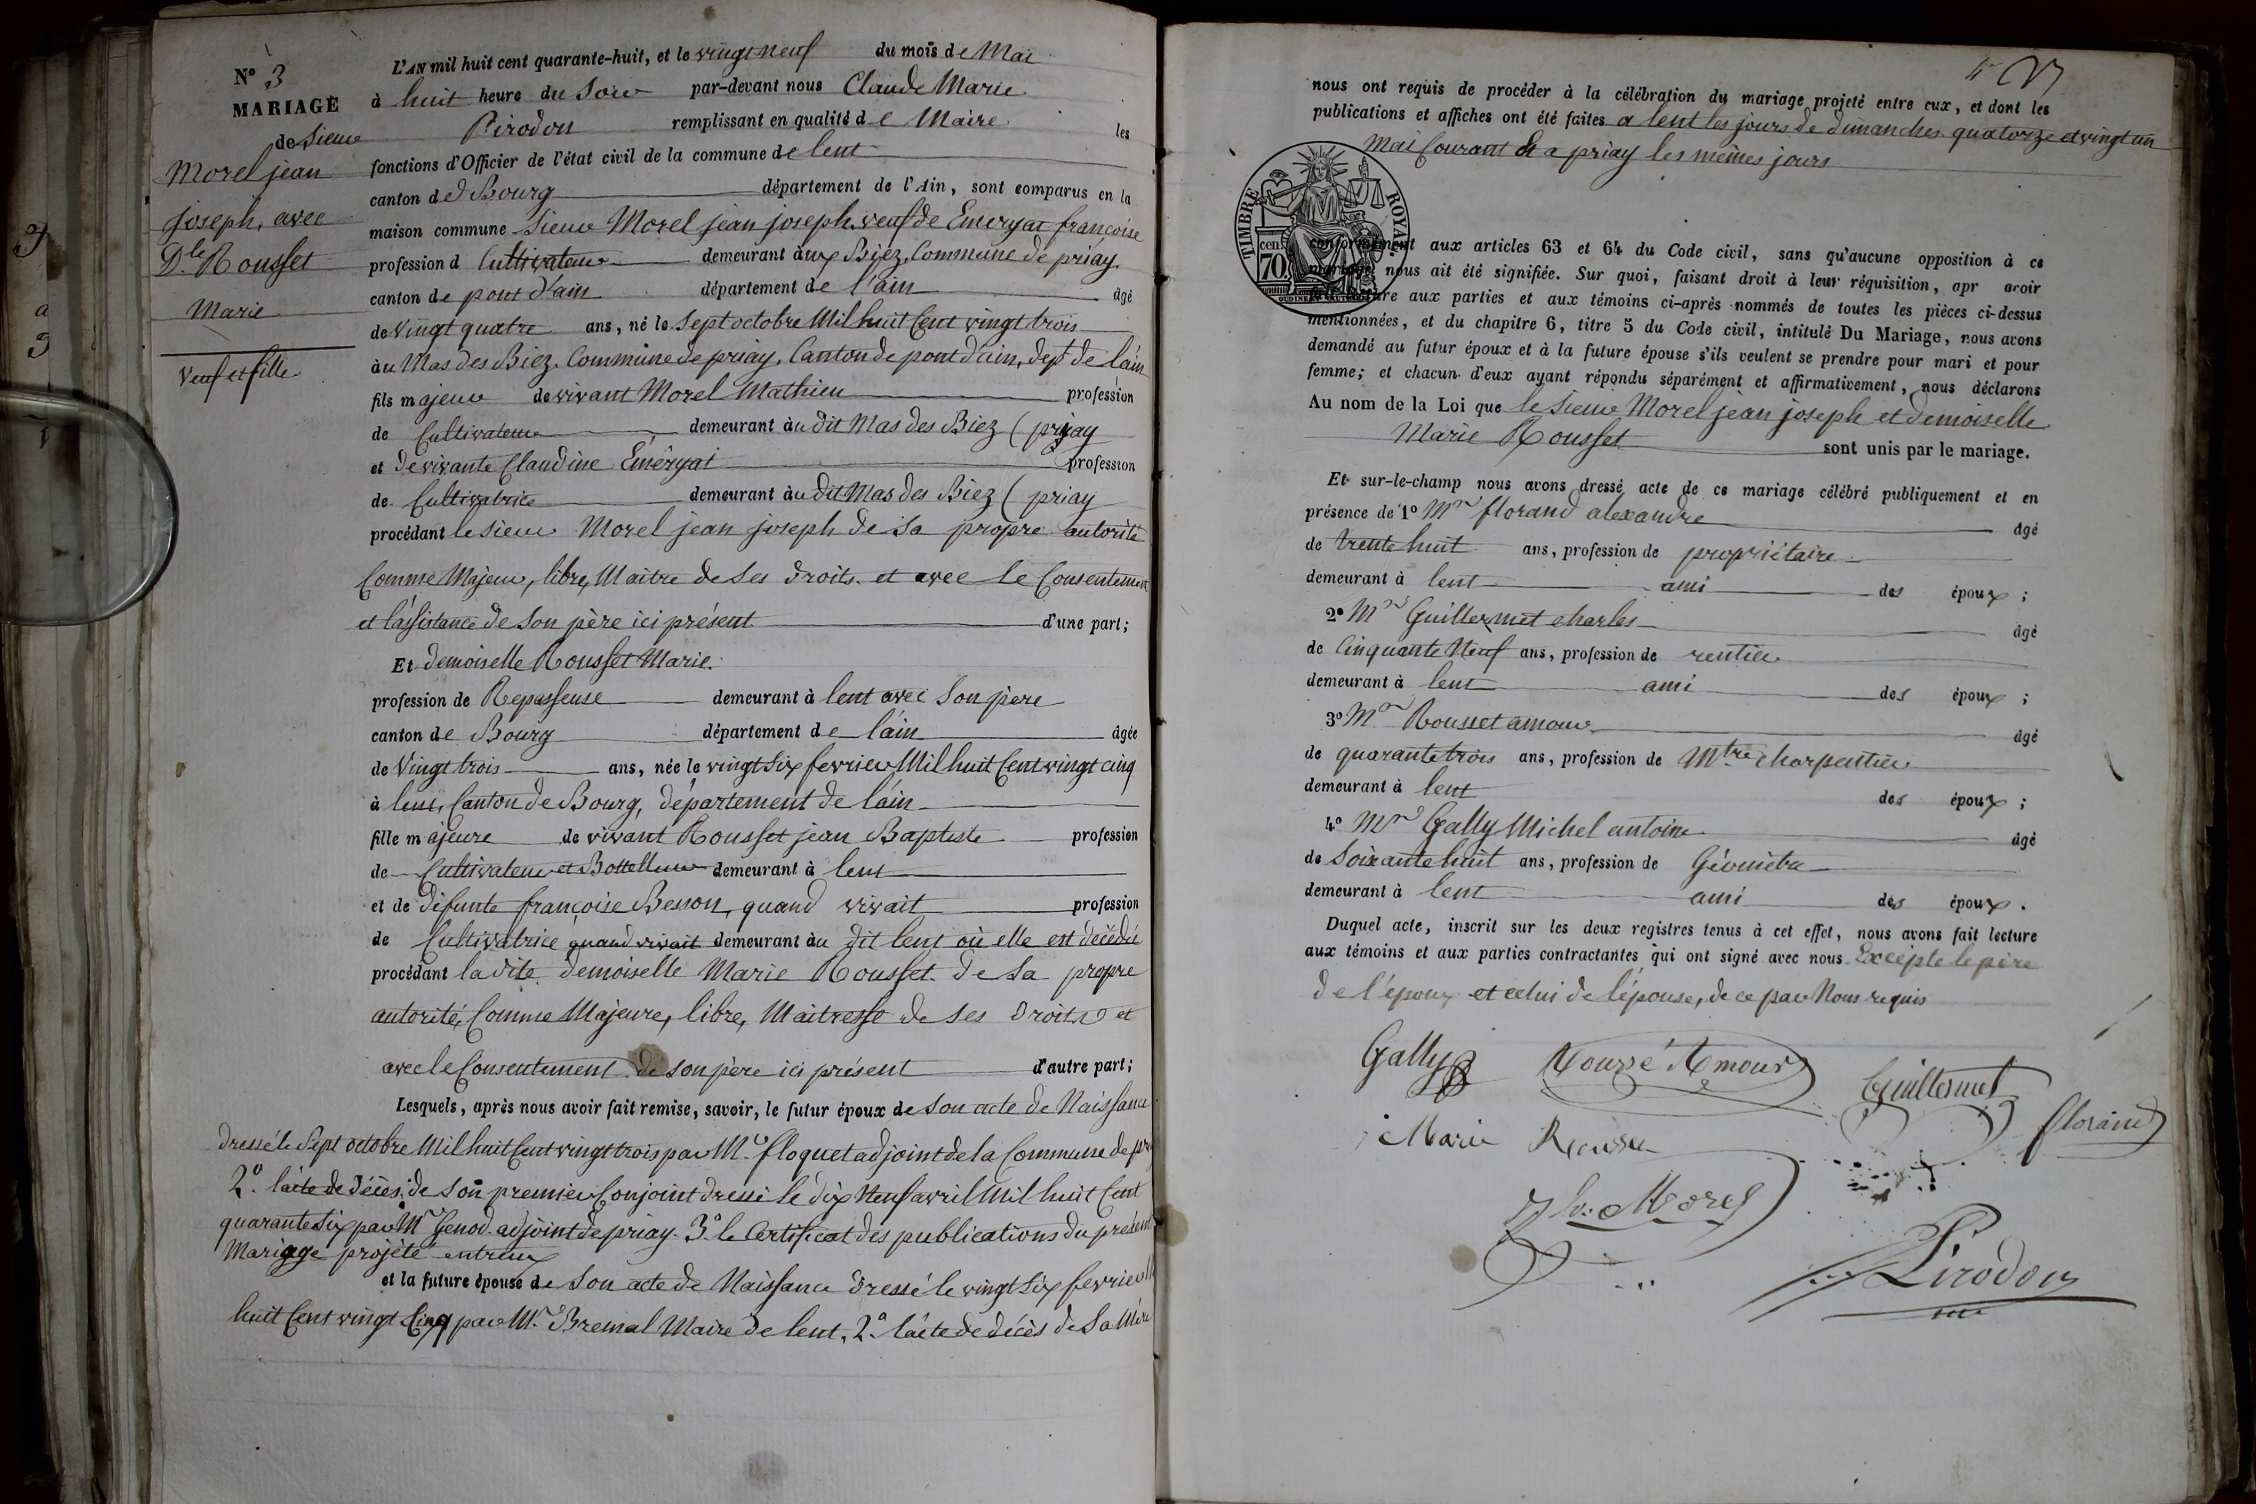 N° 3
MARIAGE
de Sieur
Morel jean
joseph, avec
D.le Rousset
Marie
Veuf et fille
L'AN mil huit cent quarante-huit, et le vingt neuf du mois de Mai
à huit heure du Soir par-devant nous Claude Marie
Pirodon remplissant en qualité de Maire les
fonctions d'Officier de l'état civil de la commune de lent
canton de Bourg département de l'Ain, sont comparus en la
maison commune Sieur Morel jean joseph, veuf de Emeryat françoise
profession d Cultivateur demeurant aux Biez, Commune de priay
canton de pont d'ain département de l'ain âgé
de Vingt quatre ans, né le Sept octobre Mil huit Cent vingt trois
au Mas des Biez, Commune de priay, Canton de pont d'ain, dept de l'ain
fils majeur de vivant Morel Mathieu profession
de Cultivateur demeurant au dit Mas des Biez (priay
et de vivante Claudine Emèryat profession
de Cultivatrice demeurant au dit Mas des Biez (priay
procédant le sieur Morel jean joseph de sa propre autorité
Comme Majeur, libre, Maitre de Ses droits et avec le Consentement
et l'assistance de Son père ici présent d'une part;
Et demoiselle Rousset Marie.
profession de Repasseuse demeurant à lent avec Son père
canton de Bourg département de l'ain âgée
de Vingt trois ans, née le vingt Six fevrier Mil huit Cent vingt cinq
à lent, Canton de Bourg, département de l'ain
fille majeure de vivant Rousset jean Baptiste profession
de Cultivateur et Bottelleur demeurant à lent
et de défunte françoise Besson, quand vivait profession
de Cultivatrice quand vivait demeurant au dit lent où elle est decédée
procédant la dite demoiselle Marie Rousset de Sa propre
autorité, Comme Majeure, libre, Maitresse de Ses Droits et
avec le Consentement de son père ici présent d'autre part;
Lesquels, après nous avoir fait remise, savoir, le futur époux de Son acte de Naissance
dressé le Sept octobre Mil huit Cent vingt trois par Mr floquet adjoint de la Commune de
2° l'acte de décès de Son premier Conjoint dressé le dix Neuf avril Mil huit Cent
quarante Six par Mr Genod adjoint de priay. 3° le Certificat des publications du présent
Mariage projeté entreux
et la future épouse de Son acte de Naissance dressé le vingt Six fevrier
huit Cent vingt Cinq par Mr Bremal Maire de lent, 2° l'acte de décès de Sa Mère
nous ont requis de procéder à la célébration du mariage projeté entre eux, et dont les
publications et affiches ont été faites a lent les jours de dimanches quatorze et vingt un
Mai Courant Et a priay les mêmes jours
TIMBRE ROYAL
cen. 70
conformément aux articles 63 et 64 du Code civil, sans qu'aucune opposition à ce
mariage nous ait été signifiée. Sur quoi, faisant droit à leur réquisition, apr avoir
fait lecture aux parties et aux témoins ci-après nommés de toutes les pièces ci-dessus
mentionnées, et du chapitre 6, titre 5 du Code civil, intitulé Du Mariage, nous avons
demandé au futur époux et à la future épouse s'ils veulent se prendre pour mari et pour
femme; et chacun d'eux ayant répondu séparément et affirmativement, nous déclarons
Au nom de la Loi que le Sieur Morel jean joseph et demoiselle
Marie Rousset sont unis par le mariage.
Et sur-le-champ nous avons dressé acte de ce mariage célébré publiquement et en
présence de 1° Mr florand alexandre âgé
de trente huit ans, profession de propriétaire
demeurant à lent ami des époux;
2° Mr Guillermet charles âgé
de Cinquante Neuf ans, profession de rentier
demeurant à lent ami des époux;
3° Mr Rousset amour âgé
de quarante trois ans, profession de Mtre charpentier
demeurant à lent des époux;
4° Mr Gally Michel antoine âgé
de Soixante huit ans, profession de Géomètre
demeurant à lent ami des époux.
Duquel acte, inscrit sur les deux registres tenus à cet effet, nous avons fait lecture
aux témoins et aux parties contractantes qui ont signé avec nous Excèpte le père
de l'époux et celui de l'épouse, de ce par Nous requis
Gally Rousé Amour Guillermet
florand
Marie Rousse
Morel
Pirodon